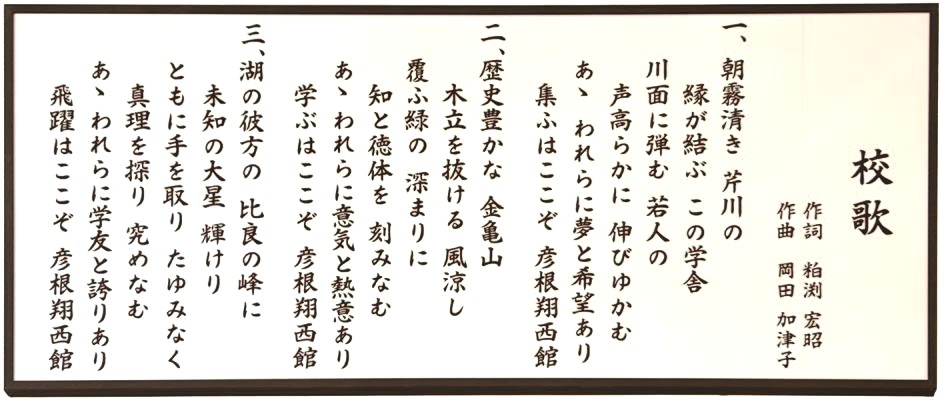 校歌
作詞 粕渕 宏昭
作曲 岡田 加津子
一、朝霧清き 芹川の
縁が結ぶ この学舎
川面に弾む 若人の
声高らかに 伸びゆかむ
あゝ われらに夢と希望あり
集ふはここぞ 彦根翔西館
二、歴史豊かな 金亀山
木立を抜ける 風涼し
覆ふ緑の 深まりに
知と徳体を 刻みなむ
あゝ われらに意気と熱意あり
学ぶはここぞ 彦根翔西館
三、湖の彼方の 比良の峰に
未知の大星 輝けり
ともに手を取り たゆみなく
真理を探り 究めなむ
あゝ われらに学友と誇りあり
飛躍はここぞ 彦根翔西館